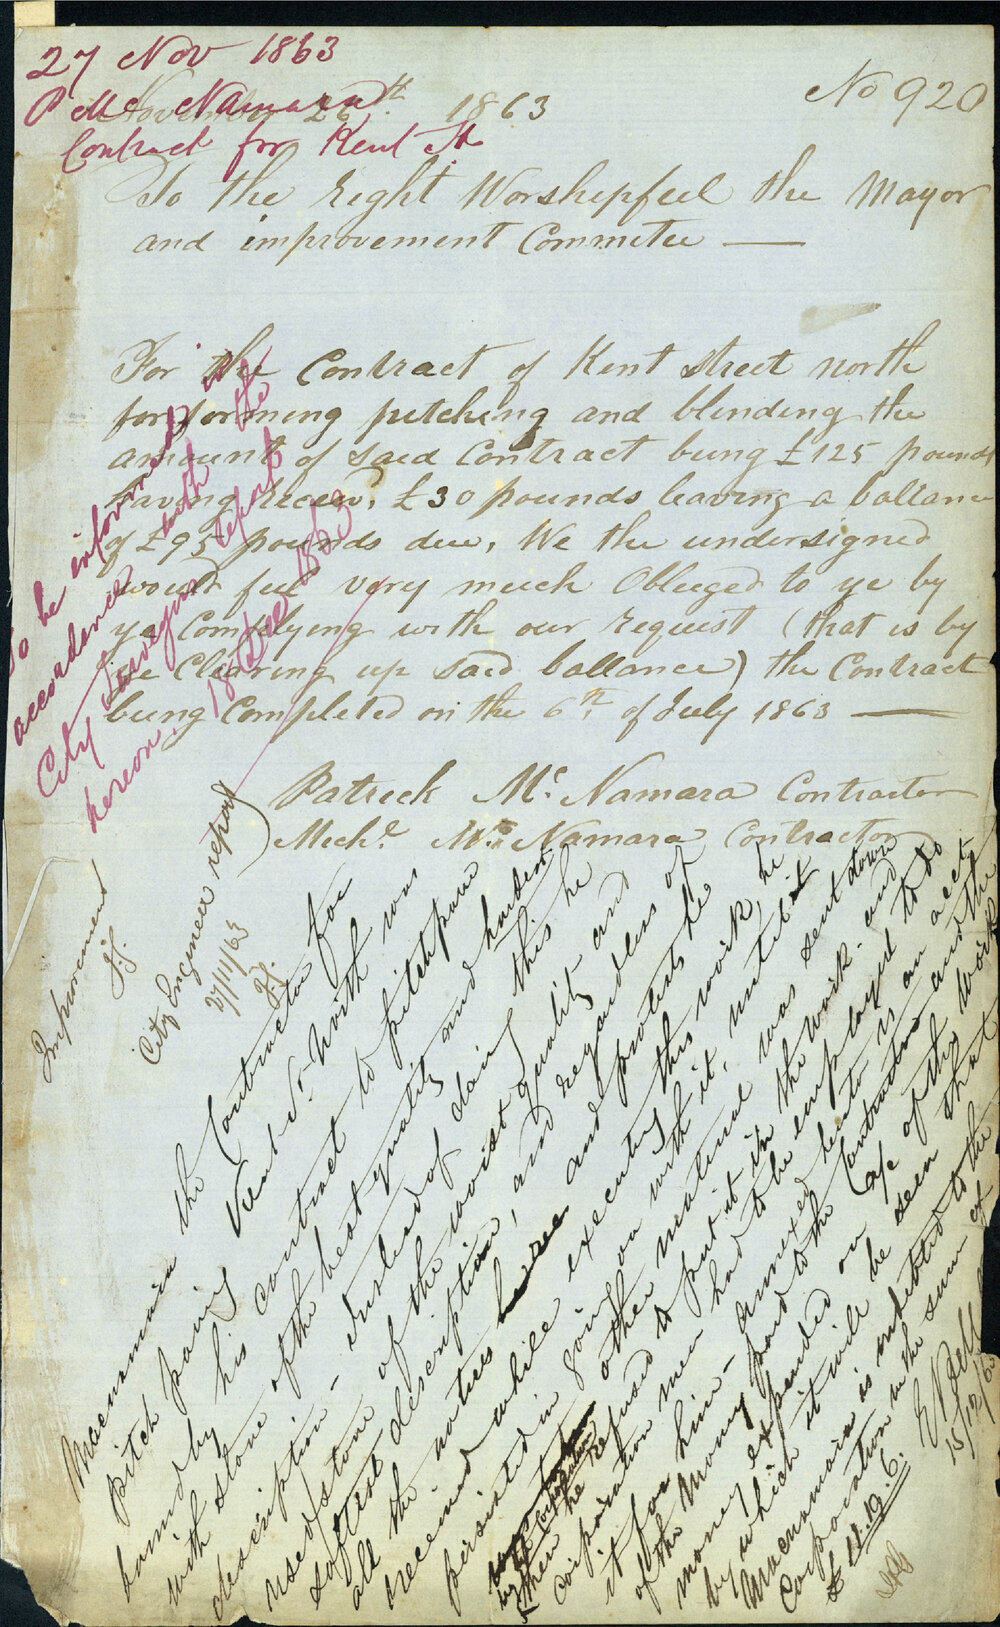 27 Nov 1863
P McNamara
Contract for Kent St
No 920
November 26th 1863
To the right Worshepfeel the Mayor
and improvement Commetee —
For the Contract of Kent street north
for forming petching and blinding the
amount of said Contract being £125 pounds
having Receivd, £30 pounds leaving a ballance
of £95 pounds due, We the undersigned
would feel very much Obleeged to ye by
ye Complying with our request (that is by
ye Clearing up said ballance) the Contract
being Completed on the 6th of July 1863 —
Patrick Mc Namara Contractor
Mechl Mc Namara Contractor
To be informed in
accordance with the
City Surveyors report
hereon. 18 Dec 1863
Improvement
J.G.
City Engineer report
27/11/63
J.G.
Macnamara the Contractor for
pitch paving Kent St North was
bound by his contract to pitchpave
with stone of the best quality and hardest
description - instead of doing this he
used stone of the worst quality and
softest description, and regardless of
all the notices and protests he
received while executing this work, he
persisted in going on with it, until
other material was sent down
by the Corporation
then he refused to put it in the work. and
Corporation men had to be employed to do
it for him - annexed hereto is an acct
of the money paid to the Contractor and the
money expended on a/c of the work
by which it will be seen that
Macnamara is indebted to the
Corporation in the sum of
£11.19.6.
E Bell
15/12/63